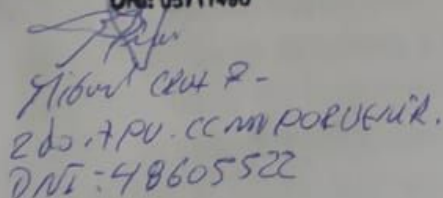 DNI: 05711490
Miguel Cruz P-
2do. APU. CC NN PORVENIR.
DNI-48605522